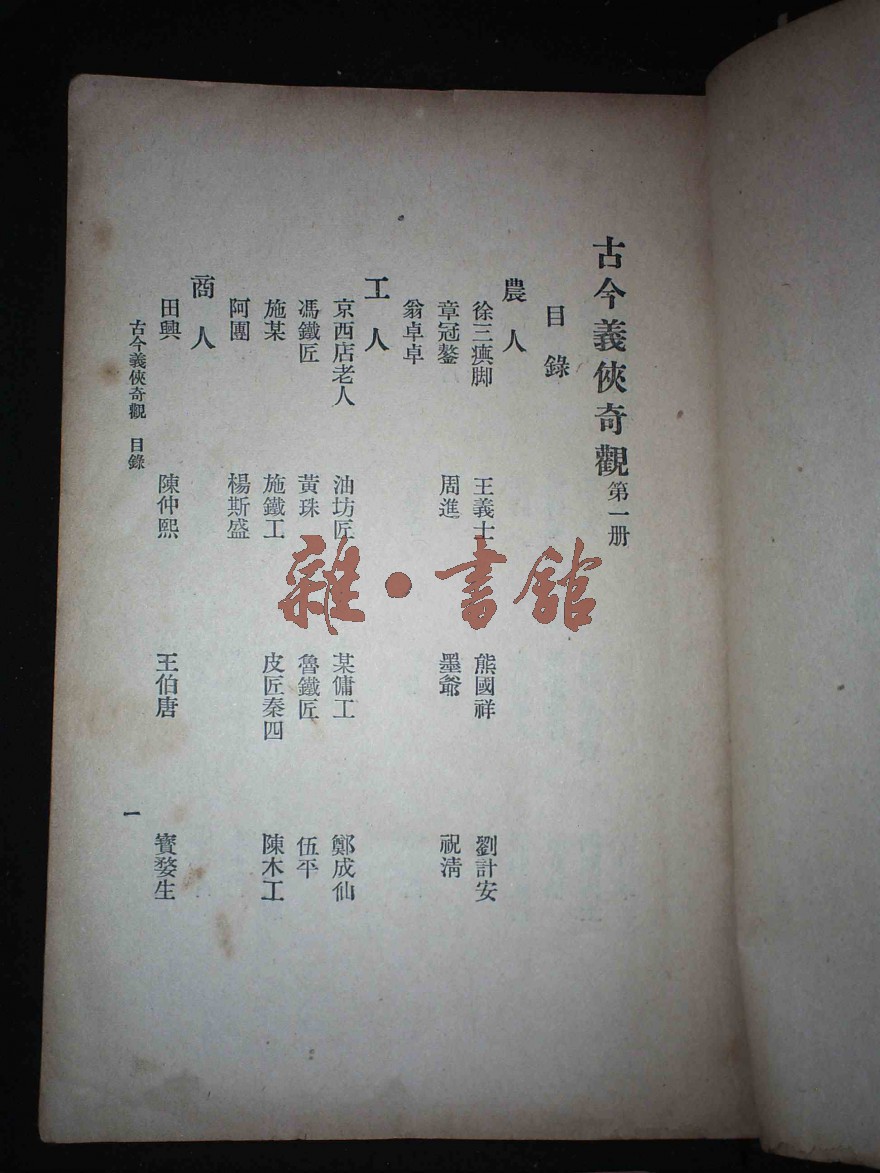 古今義俠奇觀 第一册
目錄
農人
徐三瘨脚 王義士 熊國祥 劉計安
章冠鰲 周進 墨爺 祝淸
翁卓卓
工人
京西店老人 油坊匠 某傭工 鄭成仙
馮鐵匠 黃珠 魯鐵匠 伍平
施某 施鐵工 皮匠秦四 陳木工
阿團 楊斯盛
商人
田興 陳仲熙 王伯唐 寶婺生
古今義俠奇觀 目錄 一
雜·書館